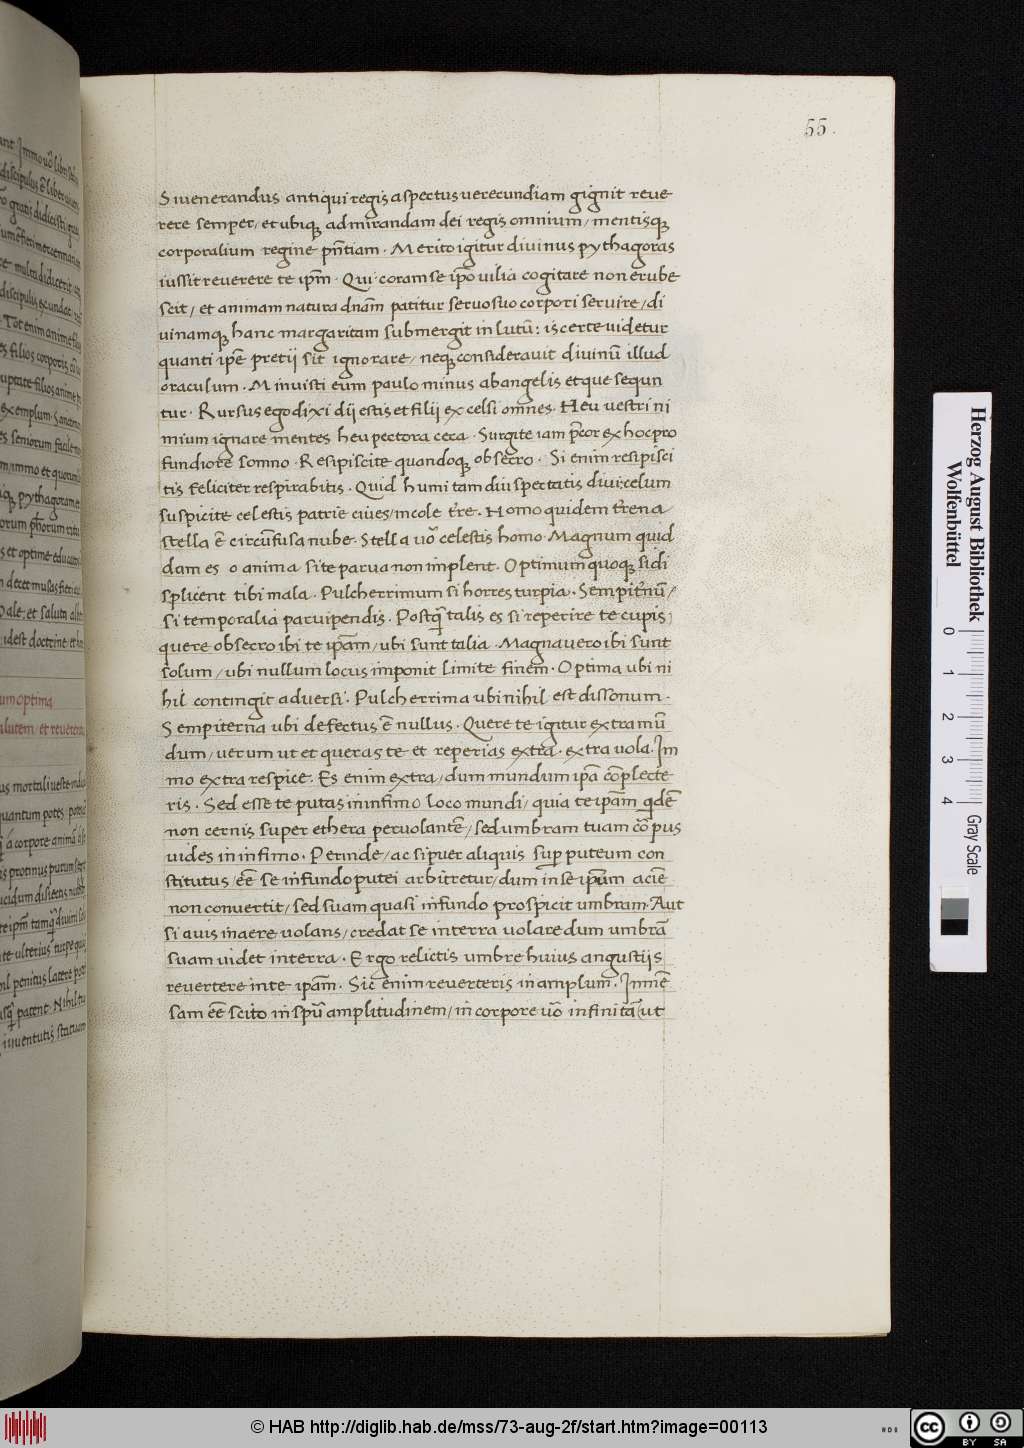 55.
Si uenerandus antiqui regis aspectus uerecundiam gignit reue
rere semper/ et ubiqȝ admirandam dei regis omnium/ mentisqȝ
corporalium regine pn̄tiam. Merito igitur diuinus pythagoras
iussit reuerere te ip̄m. Qui coram se ip̄o uilia cogitare non erube
scit/ et animam natura dn̄am patitur seruo suo corpori seruire/ di
uinamqȝ hanc margaritam submergit in lutū: is certe uidetur
quanti ip̄e pretij sit ignorare/ neqȝ considerauit diuinū illud
oraculum. Minuisti eum paulo minus ab angelis et que sequn
tur. Rursus ego dixi dij estis et filij excelsi omnes. Heu uestri ni
mium ignare mentes heu pectora ceca. Surgite iam p̄cor ex hoc pro
fundiore somno. Resipiscite quandoqȝ obsecro. Si enim resipisci
tis feliciter respirabitis. Quid humi tam diu spectatis diui: celum
suspicite celestis patrie ciues/ incole tr̄e. Homo quidem tr̄ena
stella ē circūfusa nube. Stella uō celestis homo. Magnum quid
dam es o anima si te parua non implent. Optimum quoqȝ si di
splicent tibi mala. Pulcherrimum si horres turpia. Sempit̄nū/
si temporalia paruipendis. Postq̄ talis es si reperire te cupis/
quere obsecro ibi te ip̄am/ ubi sunt talia. Magna uero ibi sunt
solum/ ubi nullum locus imponit limite finem. Optima ubi ni
hil contingit aduersi. Pulcherrima ubi nihil est dissonum.
Sempiterna ubi defectus ē nullus. Quere te igitur extra mū
dum/ uerum ut et queras te et reperias extra. extra uola. Im
mo extra respice. Es enim extra/ dum mundum ip̄a cōplecte
ris. Sed esse te putas in infimo loco mundi/ quia te ip̄am qidē
non cernis super ethera peruolantē/ sed umbram tuam cōrpus
uides in infimo. Perinde/ ac si puer aliquis sup̄ puteum con
stitutus/ eē se in fundo putei arbitretur/ dum in se ip̄um aciē
non conuertit/ sed suam quasi in fundo prospicit umbram. Aut
si auis in aere uolans/ credat se in terra uolare dum umbrā
suam uidet in terra. Ergo relictis umbre huius angustijs
reuertere in te ip̄am. Sic enim reuerteris in amplum. Immē
sam eē scito in spū amplitudinem/ in corpore uō infinitā ut
Herzog August Bibliothek
Wolfenbüttel
0 1 2 3 4 Gray Scale
© HAB http://diglib.hab.de/mss/73-aug-2f/start.htm?image=00113
cc BY SA